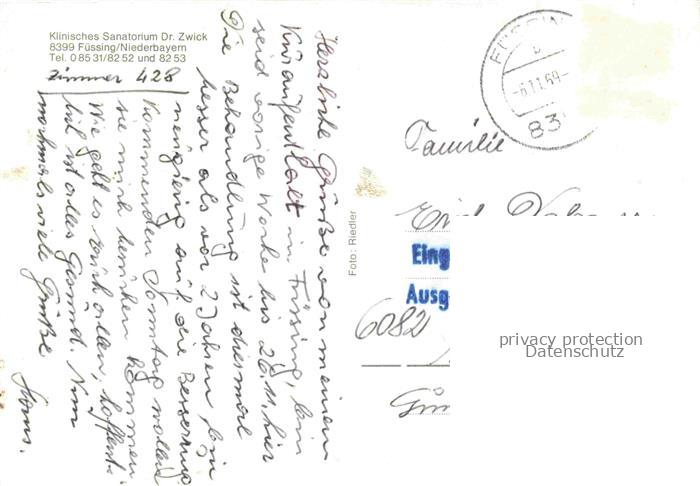 Klinisches Sanatorium Dr. Zwick
8399 Füssing/Niederbayern
Tel. 0 85 31/82 52 und 82 53
Zimmer 428
Herzliche Grüße von meinem
Kuraufenthalt in Füssing, bin
seid vorige Woche bis 26.11. hier
Die Behandlung ist diesmal
besser als vor 2 Jahren, bin
neugierig auf die Besserung
Kommenden Sonntag wollen
sie mich besuchen kommen.
Wie geht es euch allen, hoffent-
lich ist alles Gesund. Nun
nochmals viele Grüße
Foto: Riedler
-6.11.69-
83
Familie
Eing
Ausg
6082
privacy protection
Datenschutz